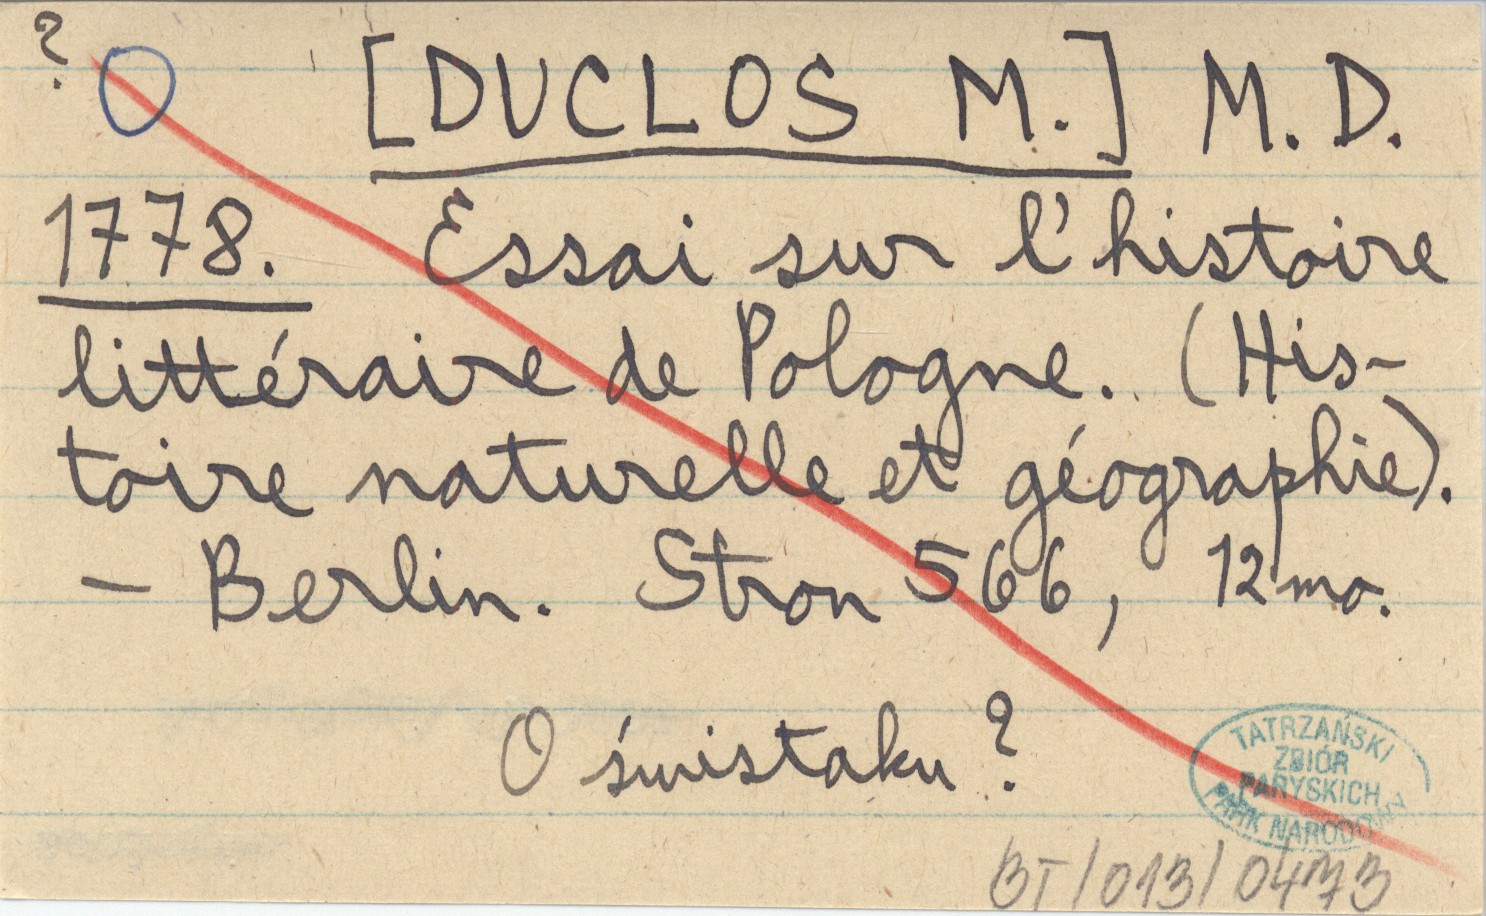 ?
[DUCLOS M.] M. D.
1778. Essai sur l'histoire
littéraire de Pologne. (His-
toire naturelle et géographie).
– Berlin. Stron 566, 12mo.
O świstaku?
TATRZAŃSKI
ZBIÓR
PARYSKICH
PARK NARODOWY
BT/013/0473